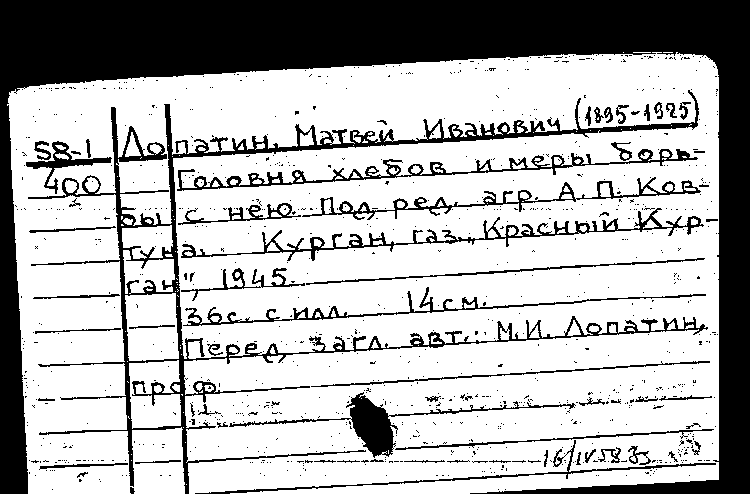 58-1 Лопатин, Матвей Иванович (1895-1925)
400 Головня хлебов и меры борь-
бы с нею. Под ред. агр. А. П. Ков-
туна. Курган, газ. „Красный Кур-
ган", 1945.
36с. с илл. 14см.
Перед загл. авт.: М.И. Лопатин,
проф.
16/IV58